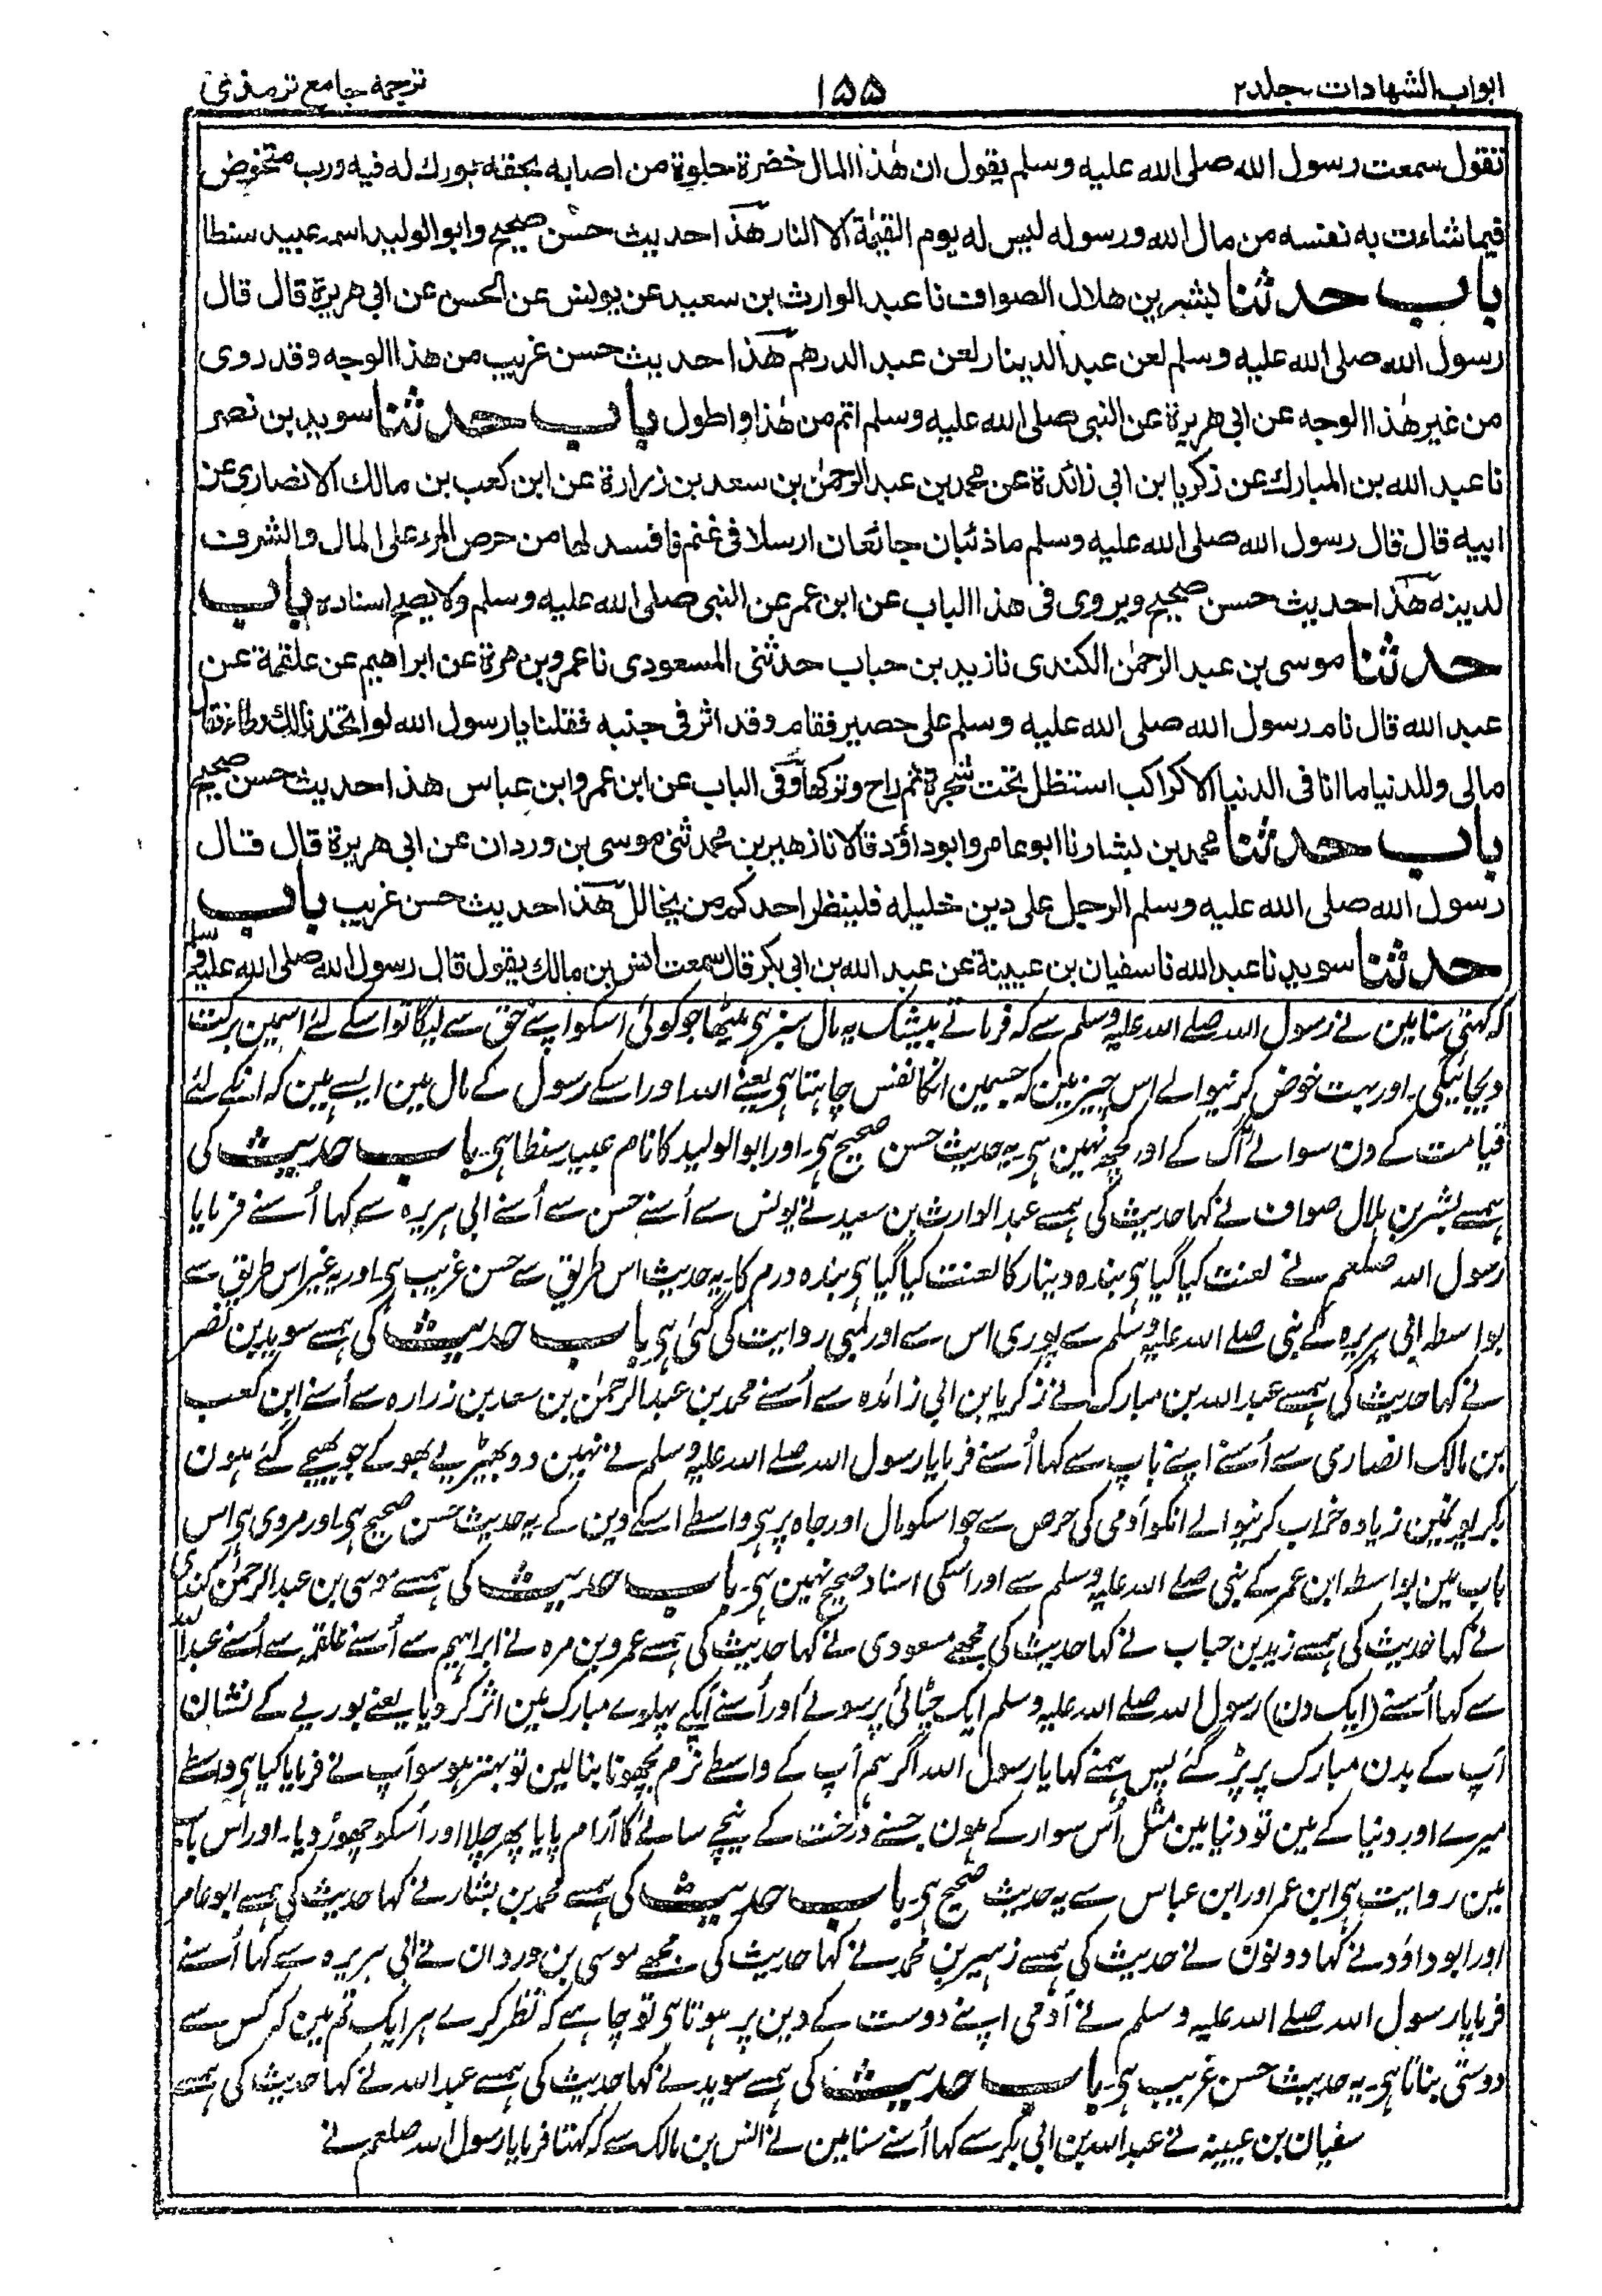 ابواب الشهادات۔جلد۲
۱۵۵
ترجمۂ جامع ترمذی
تقول سمعت رسول الله صلى الله عليه وسلم يقول ان هٰذا المال خضرة حلوة من اصابه بحقه بورك له فيه ورب متخوض
فيما شاءت به نفسه من مال الله ورسوله ليس له يوم القيٰمة الا النار هذا حديث حسن صحيح وابو الوليد اسمه عبيد سنطا
باب حدثنا بشر بن هلال الصواف نا عبد الوارث بن سعيد عن يونس عن الحسن عن ابي هريرة قال قال
رسول الله صلى الله عليه وسلم لعن عبد الدينار لعن عبد الدرهم هذا حديث حسن غريب من هذا الوجه وقد روى
من غير هٰذا الوجه عن ابي هريرة عن النبي صلى الله عليه وسلم اتم من هٰذا واطول باب حدثنا سويد بن نصر
نا عبد الله بن المبارك عن زكريا بن ابي زائدة عن محمد بن عبد الرحمٰن بن سعد بن زرارة عن ابن كعب بن مالك الانصارى عن
ابيه قال قال رسول الله صلى الله عليه وسلم ما ذئبان جائعان ارسلا فى غنم فافسد لها من حرص المرء على المال والشرف
لدينه هذا حديث حسن صحيح ويروى فى هذا الباب عن ابن عمر عن النبي صلى الله عليه وسلم ولا يصح اسناده باب
حدثنا موسى بن عبد الرحمٰن الكندى نا زيد بن حباب حدثنى المسعودى نا عمرو بن مرة عن ابراهيم عن علقمة عن
عبد الله قال نام رسول الله صلى الله عليه وسلم على حصير فقام وقد اثر فى جنبه فقلنا يا رسول الله لو اتخذنا لك وطاء فقال
مالى وللدنيا ما انا فى الدنيا الا كراكب استظل تحت شجرة ثم راح وتركها وفى الباب عن ابن عمر وابن عباس هذا حديث حسن صحيح
باب حدثنا محمد بن بشار نا ابو عامر وابو داؤد قالا نا زهير بن محمد ثنى موسى بن وردان عن ابي هريرة قال قال
رسول الله صلى الله عليه وسلم الرجل على دين خليله فلينظر احدكم من يخالل هذا حديث حسن غريب باب
حدثنا سويد نا عبد الله نا سفيان بن عيينة عن عبد الله بن ابي بكر قال سمعت انس بن مالك يقول قال رسول الله صلى الله عليه وسلم
کہ کہتی سنا مین نے رسول اللہ صلے اللہ علیہ وسلم سے کہ فرماتے بیشک یہ مال سبز ہی میٹھا جو کوئی اسکو اپنے حق سے لیگا تو اسکے لئے اسمین برکت
دیجائیگی۔ اور بہت خوض کرنیوالے اس چیز مین کہ جسمین انکا نفس چاہتا ہی یعنے اللہ اور اسکے رسول کے مال مین ایسے ہین کہ انکے لئے
قیامت کے دن سوائے آگ کے اور کچھ نہین ہی۔ یہ حدیث حسن صحیح ہی۔ اور ابو الولید کا نام عبید سنطا ہی۔ باب حدیث کی
ہمسے بشر بن ہلال صواف نے کہا حدیث کی ہمسے عبد الوارث بن سعید نے یونس سے اُسنے حسن سے اُسنے ابی ہریرہ سے کہا اُسنے فرمایا
رسول اللہ صلعم نے لعنت کیا گیا ہی بندہ دینار کا لعنت کیا گیا ہی بندہ درم کا۔ یہ حدیث اس طریق سے حسن غریب ہی۔ اور یہ غیر اس طریق سے
بواسطہ ابی ہریرہ کے نبی صلے اللہ علیہ وسلم سے پوری اس سے اور لمبی روایت کی گئی ہی باب حدیث کی ہمسے سوید بن نصر
نے کہا حدیث کی ہمسے عبد اللہ بن مبارک نے زکریا بن ابی زائدہ سے اُسنے محمد بن عبد الرحمٰن بن سعد بن زرارہ سے اُسنے ابن کعب
بن مالک انصاری سے اُسنے اپنے باپ سے کہا اُسنے فرمایا رسول اللہ صلے اللہ علیہ وسلم نے نہین دو بھیڑیے بھوکے جو بھیجے گئے ہون
بکریونمین زیادہ خراب کرنیوالے انکو آدمی کی حرص سے جو اسکو مال اور جاہ پر ہی واسطے اسکے دین کے یہ حدیث حسن صحیح ہی۔ اور مروی ہی اس
باب مین بواسطہ ابن عمر کے نبی صلے اللہ علیہ وسلم سے اور اسکی اسناد صحیح نہین ہی۔ باب حدیث کی ہمسے موسی بن عبد الرحمٰن کندی
نے کہا حدیث کی ہمسے زید بن حباب نے کہا حدیث کی مجھسے مسعودی نے کہا حدیث کی ہمسے عمرو بن مرہ نے ابراہیم سے اُسنے علقمہ سے اُسنے عبد اللہ
سے کہا اُسنے (ایک دن) رسول اللہ صلے اللہ علیہ وسلم ایک چٹائی پر سوئے اور اُسنے آپکے پہلوے مبارک مین اثر کر دیا یعنے بوریے کے نشان
آپ کے بدن مبارک پر پڑ گئے پس ہمنے کہا یا رسول اللہ اگر ہم آپ کے واسطے نرم بچھونا بنا لین تو بہتر ہو سو آپ نے فرمایا کیا ہی واسطے
میرے اور دنیا کے مین تو دنیا مین مثل اُس سوار کے ہون جسنے درخت کے نیچے سائے کا آرام پایا پھر چلا اور اُسکو چھوڑ دیا۔ اور اس باب
مین روایت ہی ابن عمر اور ابن عباس سے یہ حدیث صحیح ہی۔ باب حدیث کی ہمسے محمد بن بشار نے کہا حدیث کی ہمسے ابو عامر
اور ابو داؤد نے کہا دونون نے حدیث کی ہمسے زہیر بن محمد نے کہا حدیث کی مجھسے موسی بن وردان نے ابی ہریرہ سے کہا اُسنے
فرمایا رسول اللہ صلے اللہ علیہ وسلم نے آدمی اپنے دوست کے دین پر ہوتا ہی تو چاہے کہ نظر کرے ہر ایک تم مین کہ کس سے
دوستی بناتا ہی۔ یہ حدیث حسن غریب ہی۔ باب حدیث کی ہمسے سوید نے کہا حدیث کی ہمسے عبد اللہ نے کہا حدیث کی ہمسے
سفیان بن عیینہ نے عبد اللہ بن ابی بکر سے کہا اُسنے سنا مین نے انس بن مالک سے کہ کہتا فرمایا رسول اللہ صلعم نے